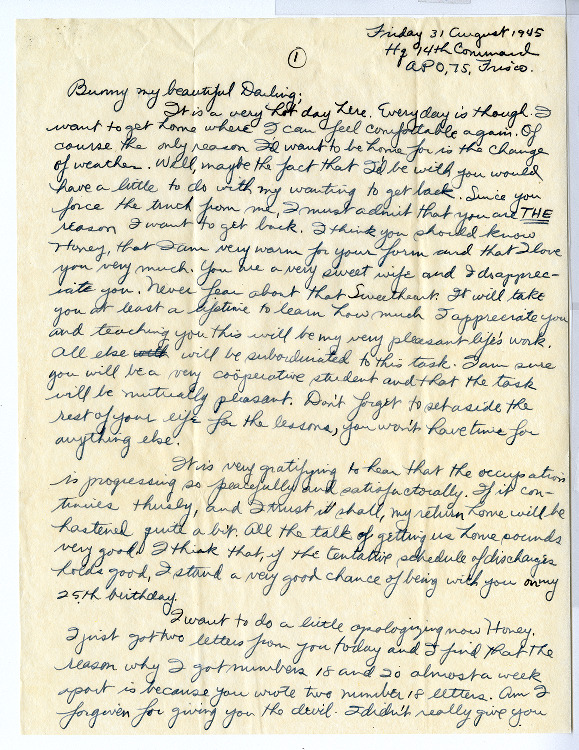 Friday 31 August 1945
Hq 14th Command
APO, 75, Frisco.
1
Bunny my beautiful Darling;
It is a very hot day here. Everyday is though. I
want to get home where I can feel comfortable again. Of
course the only reason I'd want to be home for is the change
of weather. Well, maybe the fact that I'd be with you would
have a little to do with my wanting to get back. Since you
force the truth from me, I must admit that you are THE
reason I want to get back. I think you should know
Honey, that I am very warm for your form and that I love
you very much. You are a very sweet wife and I do apprec-
iate you. Never fear about that Sweetheart. It will take
you at least a lifetime to learn how much I appreciate you
and teaching you this will be my very pleasant life's work.
All else will be subordinated to this task. I am sure
you will be a very coöperative student and that the task
will be mutually pleasant. Don't forget to set aside the
rest of your life for the lessons, you won't have time for
anything else.
It is very gratifying to hear that the occupation
is progressing so peacefully and satisfactorally. If it con-
tinues thusly, and I trust it shall, my return home will be
hastened quite a bit. All the talk of getting us home sounds
very good. I think that, if the tentative schedule of discharges
holds good, I stand a very good chance of being with you on my
25th birthday.
I want to do a little apologizing now Honey.
I just got two letters from you today and I find that the
reason why I got numbers 18 and 20 almost a week
apart is because you wrote two number 18 letters. Am I
forgiven for giving you the devil. I didn't really give you